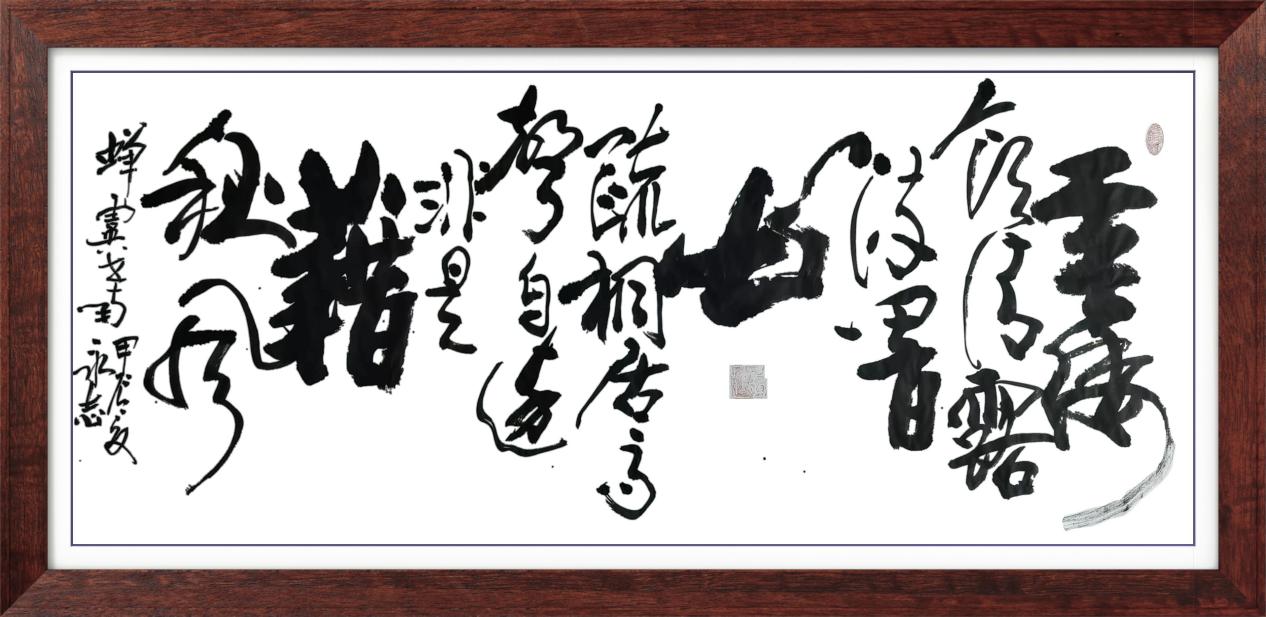 垂緌
飲清露
流響
出
疏桐居高
聲自遠
非是
藉
秋風
蝉 虞世南
甲辰夏
永志